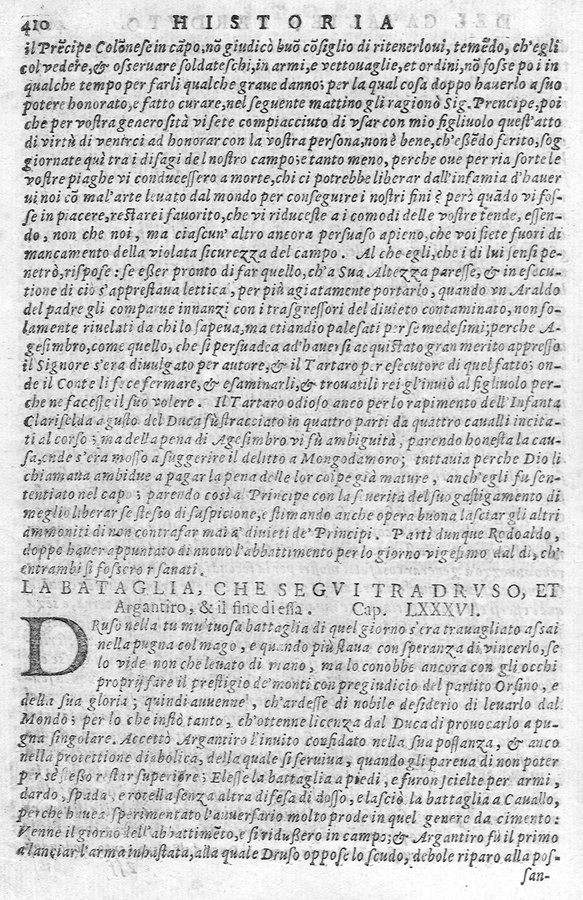 410 HISTORIA
il Prẽcipe Colõnese in cãpo, nõ giudicò buõ cõsiglio di ritenerloui, temẽdo, ch'egli
col vedere, & osseruare soldateschi, in armi, e vettouaglie, et ordini, nõ fosse poi in
qualche tempo per farli qualche graue danno; per la qual cosa doppo hauerlo a suo
potere honorato, e fatto curare, nel seguente mattino gli ragionò Sig. Prencipe, poi
che per vostra generosità vi sete compiacciuto di vsar con mio figliuolo quest'atto
di virtù di venirci ad honorar con la vostra persona, non è bene, ch'essẽdo ferito, sog
giornate quà tra i disagi del nostro campo; e tanto meno, perche oue per ria sorte le
vostre piaghe vi conducessero a morte, chi ci potrebbe liberar dall'infamia d'hauer
ui noi cõ mal'arte leuato dal mondo per conseguire i nostri fini? però quãdo vi fos-
se in piacere, restarei fauorito, che vi riduceste a i comodi delle vostre tende, essen-
do, non che noi, ma ciascun'altro ancora persuaso apieno, che voi siete fuori di
mancamento della violata sicurezza del campo. Al che egli, che i di lui sensi pe-
netrò, rispose: se esser pronto di far quello, ch'a Sua Altezza paresse, & in esecu-
tione di ciò s'apprestaua lettica, per più agiatamente portarlo, quando vn Araldo
del padre gli comparue innanzi con i trasgressori del diuieto contaminato, non so-
lamente riuelati da chi lo sapeua, ma etiandio palesati per se medesimi; perche A-
gesimbro, come quello, che si persuadea ad hauersi acquistato gran merito appresso
il Signore s'era diuulgato per autore, & il Tartaro per esecutore di quel fatto; on-
de il Conte li fece fermare, & esaminarli, & trouatili rei gl'inuiò al figliuolo per-
che ne facesse il suo volere. Il Tartaro odioso anco per lo rapimento dell'Infanta
Clariselda agusto del Duca fù stracciato in quattro parti da quattro caualli incita-
ti al corso; ma della pena di Agesimbro vi fù ambiguità, parendo honesta la cau-
sa, onde s'era mosso a suggerire il delitto a Mongodamoro; tuttauia perche Dio li
chiamaua ambidue a pagar la pena delle lor colpe già mature, anch'egli fu sen-
tentiato nel capo; parendo così al Principe con la seuerità del suo gastigamento di
meglio liberar se stesso di suspicione, e stimando anche opera buona lasciar gli altri
ammoniti di non contrafar mai a' diuieti de' Principi. Partì dunque Rodoaldo,
doppo hauer appuntato di nuouo l'abbattimento per lo giorno vigesimo dal dì, ch'
entrambi si fossero risanati.
LA BATAGLIA, CHE SEGVI TRA DRVSO, ET
Argantiro, & il fine di essa. Cap. LXXXVI.
DRuso nella tumultuosa battaglia di quel giorno s'era trauagliato assai
nella pugna col mago, e quando più staua con speranza di vincerlo, se
lo vide non che leuato di mano, ma lo conobbe ancora con gli occhi
proprij fare il prestigio de' monti con pregiudicio del partito Orsino, e
della sua gloria; quindi auuenne, ch'ardesse di nobile desiderio di leuarlo dal
Mondo; per lo che instò tanto, ch'ottenne licenza dal Duca di prouocarlo a pu-
gna singolare. Accettò Argantiro l'inuito confidato nella sua possanza, & anco
nella protettione diabolica, della quale si seruiua, quando gli pareua di non poter
per se stesso restar superiore; Elesse la battaglia a piedi, e furon scielte per armi,
dardo, spada, e rotella senza altra difesa di dosso, e lasciò la battaglia a Cauallo,
perche hauea sperimentato l'auuersario molto prode in quel genere da cimento:
Venne il giorno dell'abbattimẽto, e si ridussero in campo; & Argantiro fù il primo
a lanciar l'arma inhastata, alla quale Druso oppose lo scudo, debole riparo alla pos-
san-